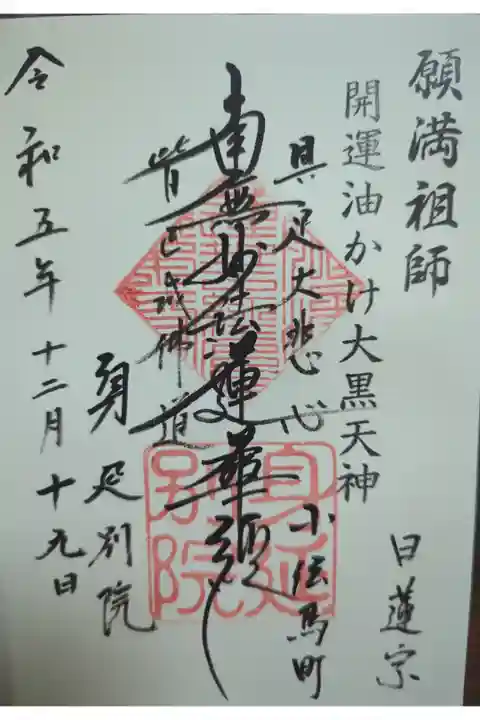 願満祖師
開運油かけ大黒天神
日蓮宗
具足大悲心
小伝馬町
南無妙法蓮華経
皆已成佛道
身延別院
令和五年十二月十九日
身延
別院